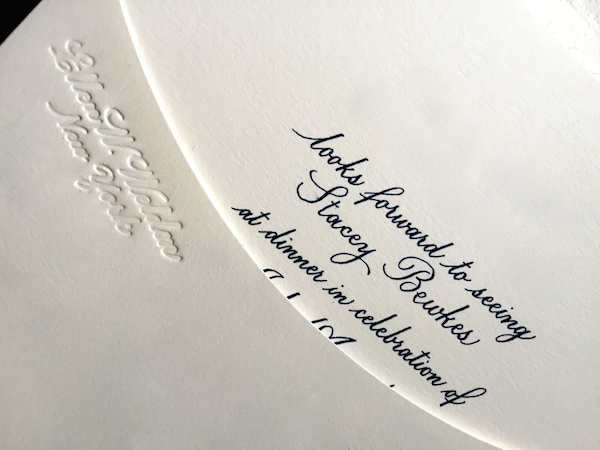 Ellen W. Weldon
New York
looks forward to seeing
Stacey Bewkes
at dinner in celebration of